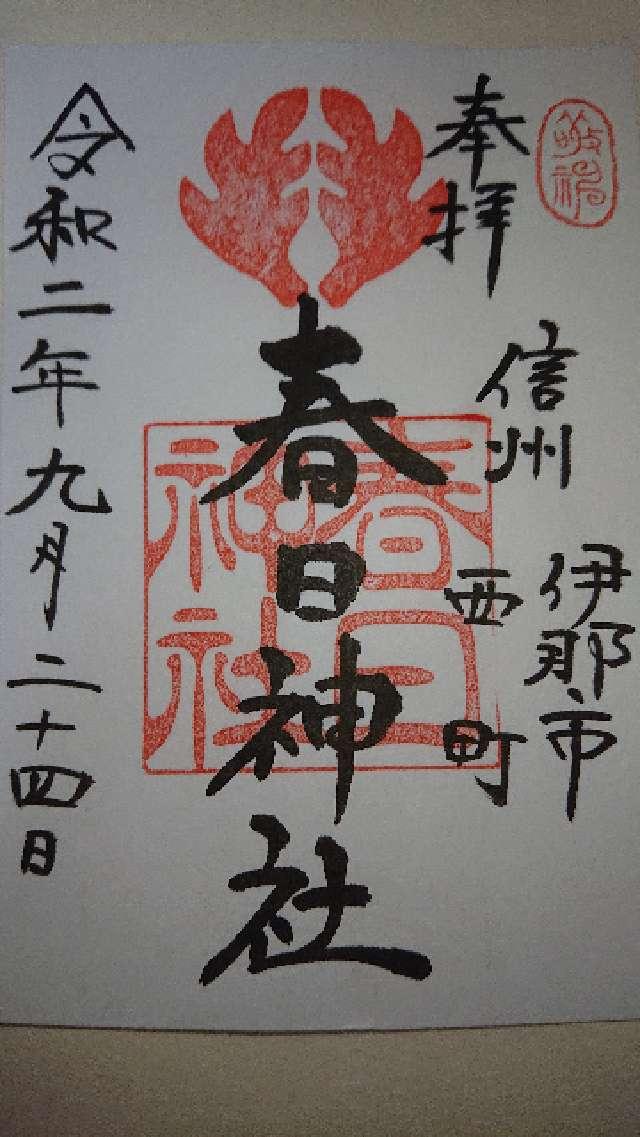 敬神
奉拝
信州
伊那市
西町
春日神社
春日神社
令和二年九月二十四日